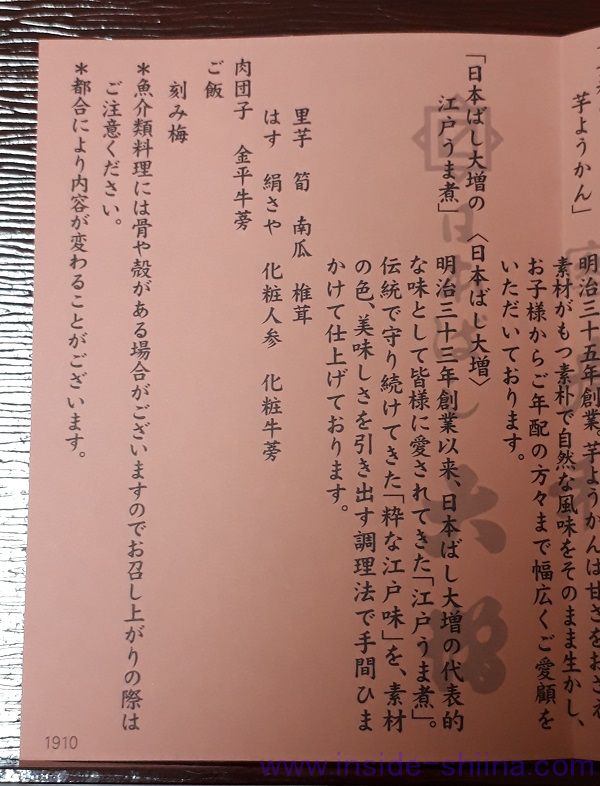 芋ようかん」
明治三十五年創業、芋ようかんは甘さをおさえ
素材がもつ素朴で自然な風味をそのまま生かし、
お子様からご年配の方々まで幅広くご愛顧を
いただいております。
「日本ばし大増の 〈日本ばし大増〉
江戸うま煮」
明治三十三年創業以来、日本ばし大増の代表的
な味として皆様に愛されてきた「江戸うま煮」。
伝統で守り続けてきた「粋な江戸味」を、素材
の色、美味しさを引き出す調理法で手間ひま
かけて仕上げております。
里芋 筍 南瓜 椎茸
はす 絹さや 化粧人参 化粧牛蒡
肉団子 金平牛蒡
ご飯
刻み梅
*魚介類料理には骨や殻がある場合がございますのでお召し上がりの際は
ご注意ください。
*都合により内容が変わることがございます。
1910
日本ばし大増
www.inside-shiina.com